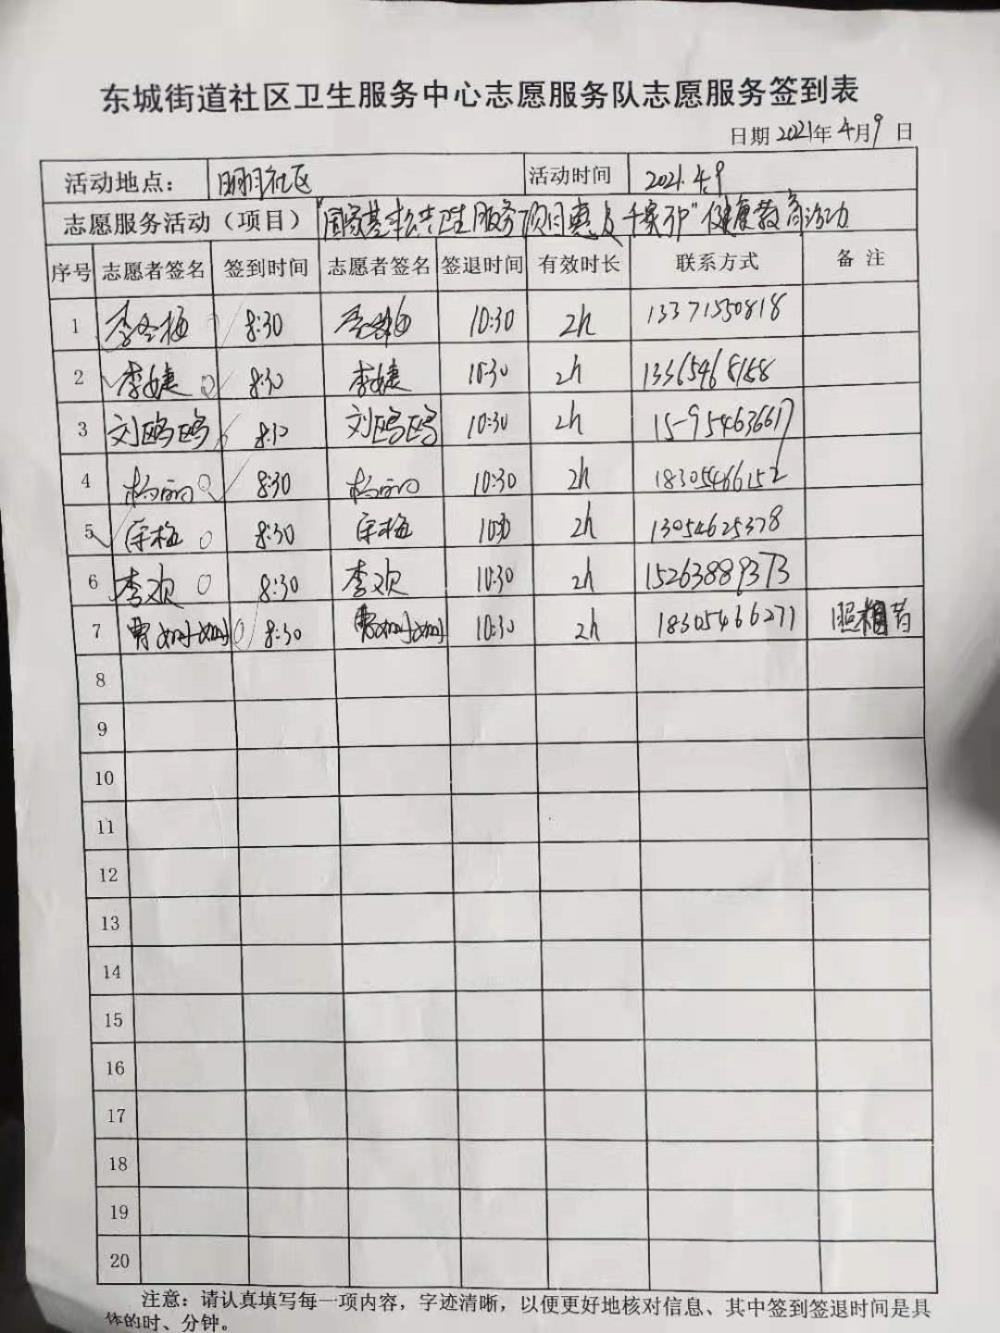 东城街道社区卫生服务中心志愿服务队志愿服务签到表
日期 2021年 4月 9 日
活动地点： 明月社区 活动时间 2021.4.9
志愿服务活动（项目） "国家基本公共卫生服务项目惠及千家万户"健康教育活动
序号 志愿者签名 签到时间 志愿者签名 签退时间 有效时长 联系方式 备 注
1 8:30 10:30 2h 13371550818
2 李婕 8:30 李婕 10:30 2h 13365468188
3 刘鸥鸥 8:30 刘鸥鸥 10:30 2h 15-954636617
4 杨丽 8:30 杨丽 10:30 2h 18305466152
5 8:30 10:30 2h 13054625378
6 李欢 8:30 李欢 10:30 2h 15263889373
7 曹姗姗 8:30 曹姗姗 10:30 2h 18305466271 照相者
8
9
10
11
12
13
14
15
16
17
18
19
20
注意：请认真填写每一项内容，字迹清晰，以便更好地核对信息、其中签到签退时间是具
体的时、分钟。